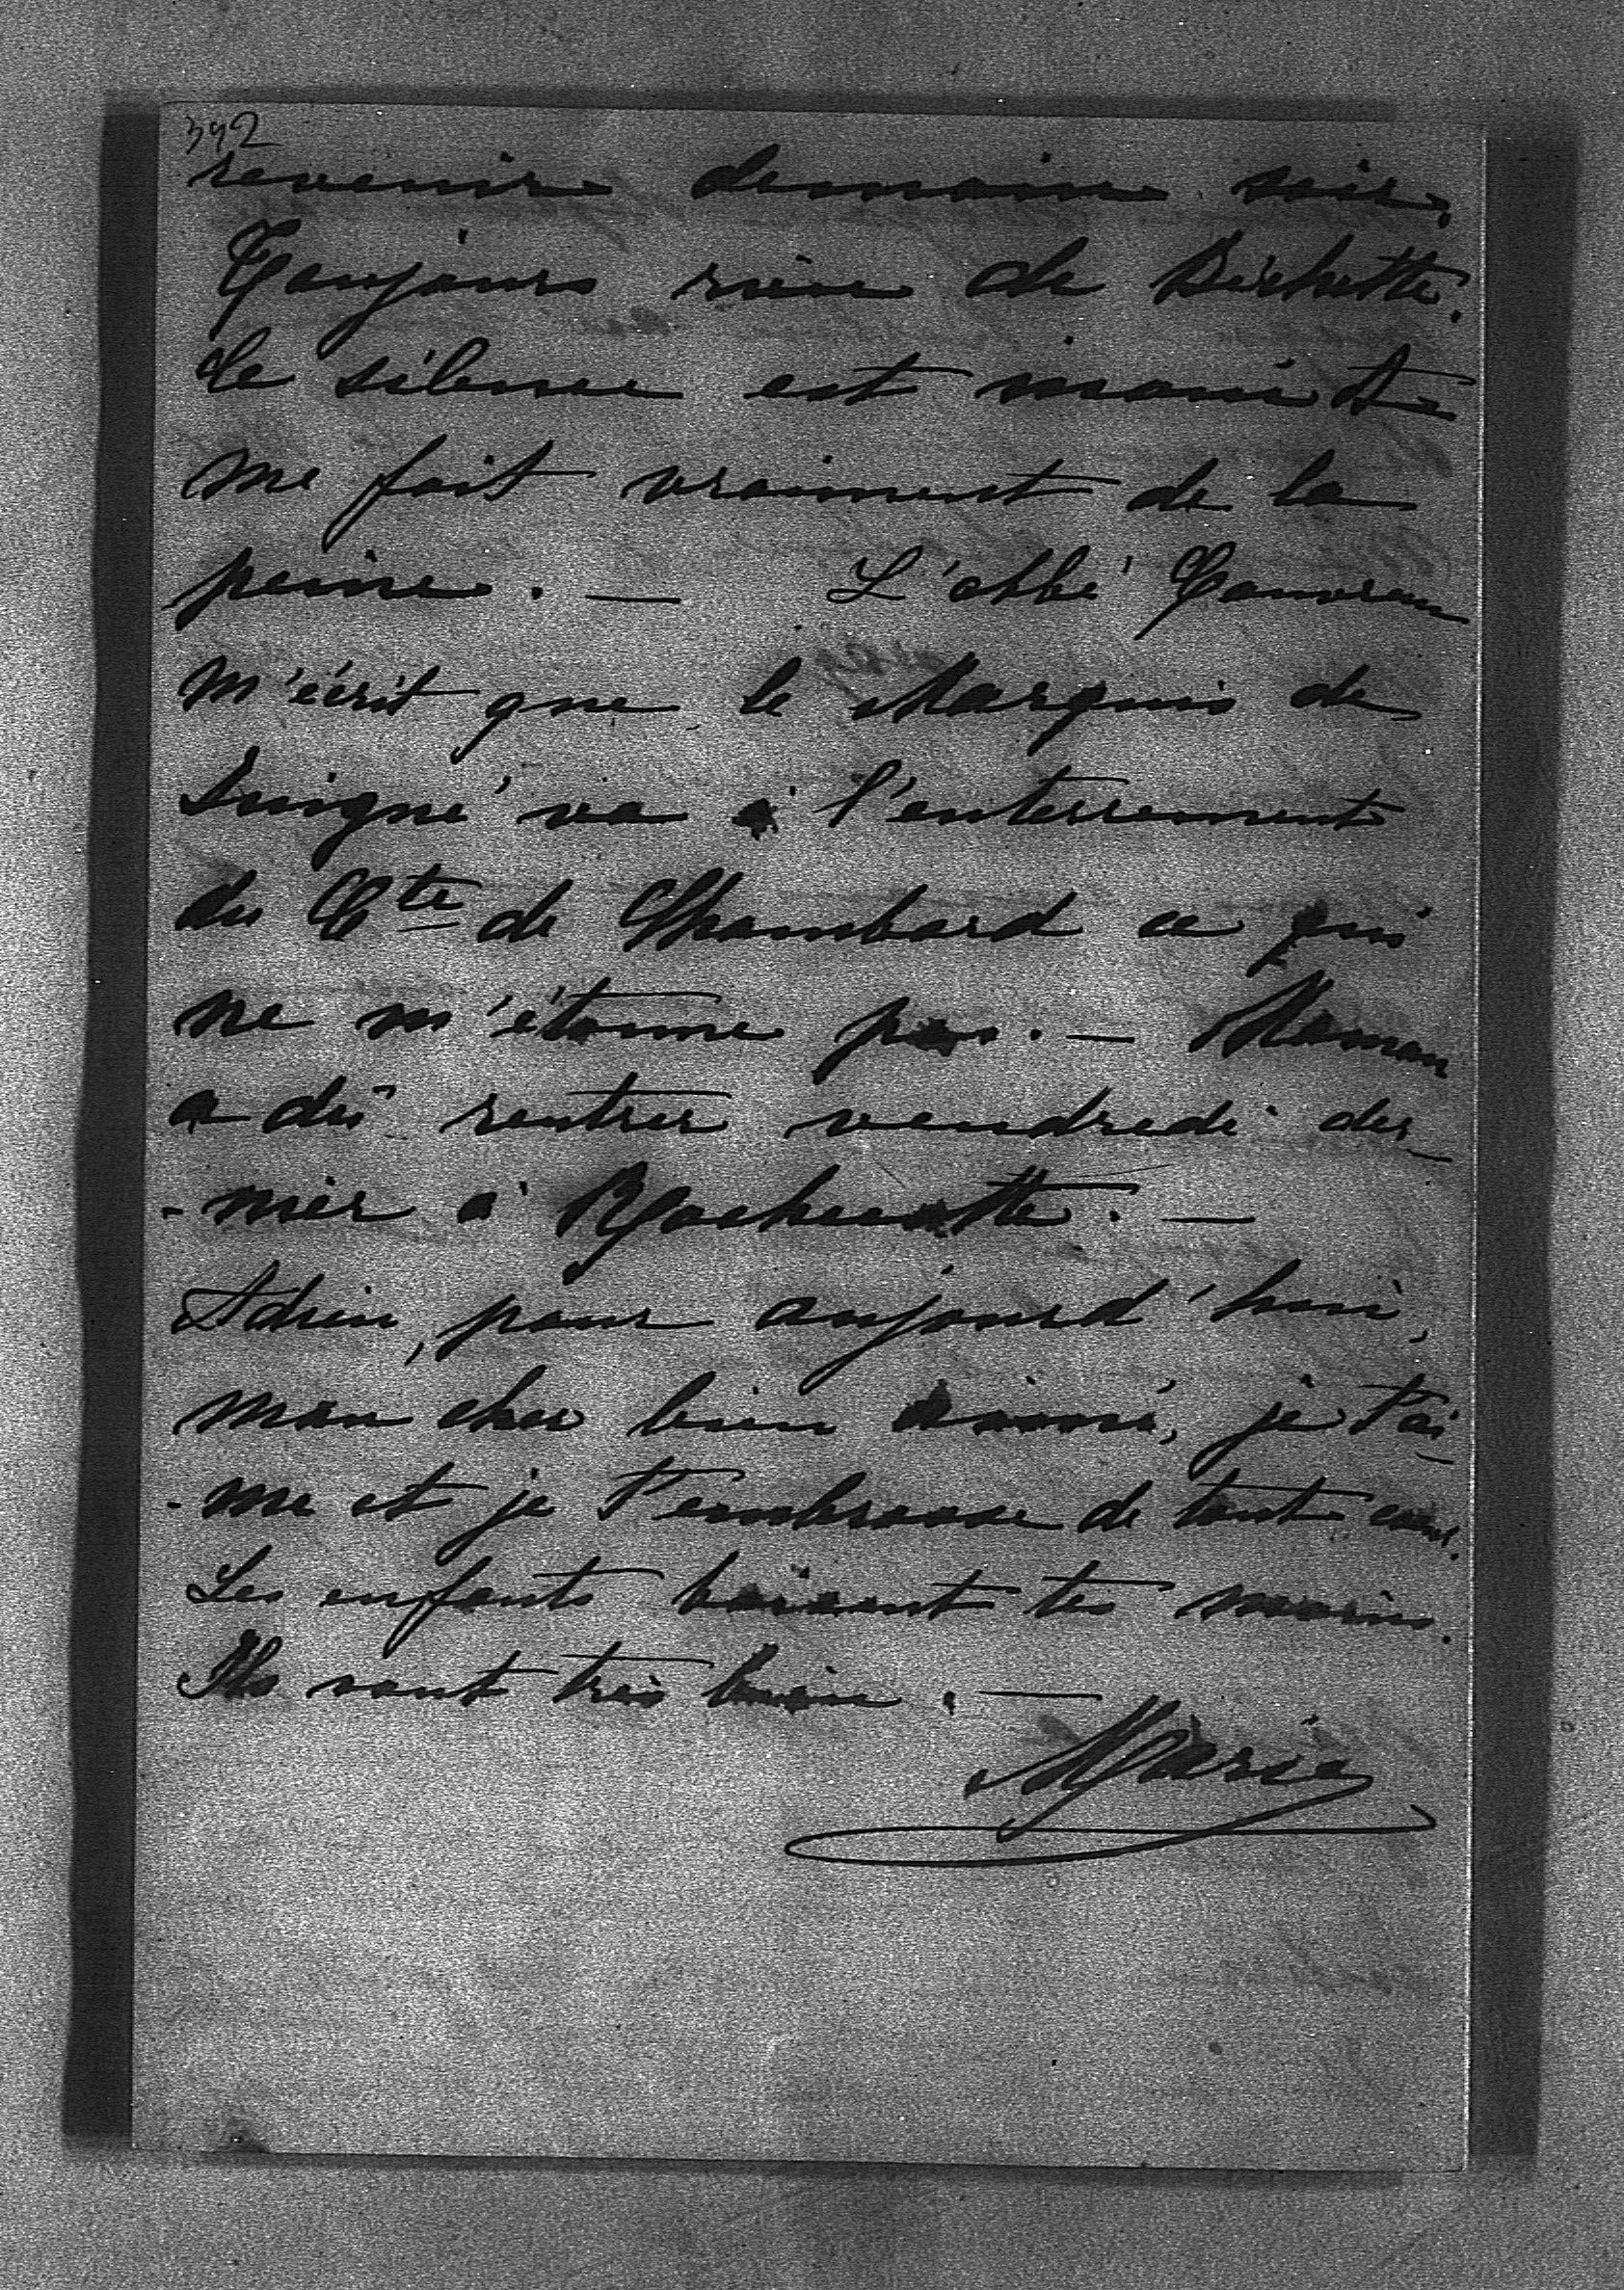 392
revenir demain soir.
Toujours rien de Bichette.
Le silence est inouï et
me fait vraiment de la
peine. — L'abbé
m'écrit que le Marquis de
va à l'enterrement
du Cte de Chambord ce qui
ne m'étonne pas. — Maman
a dû rentrer vendredi der
-nier à Rochecotte. —
Adieu, pour aujourd'hui,
mon cher bien aimé, je t'ai
-me et je t'embrasse de tout cœur.
Les enfants baisent tes mains.
Ils vont très bien. —
Marie